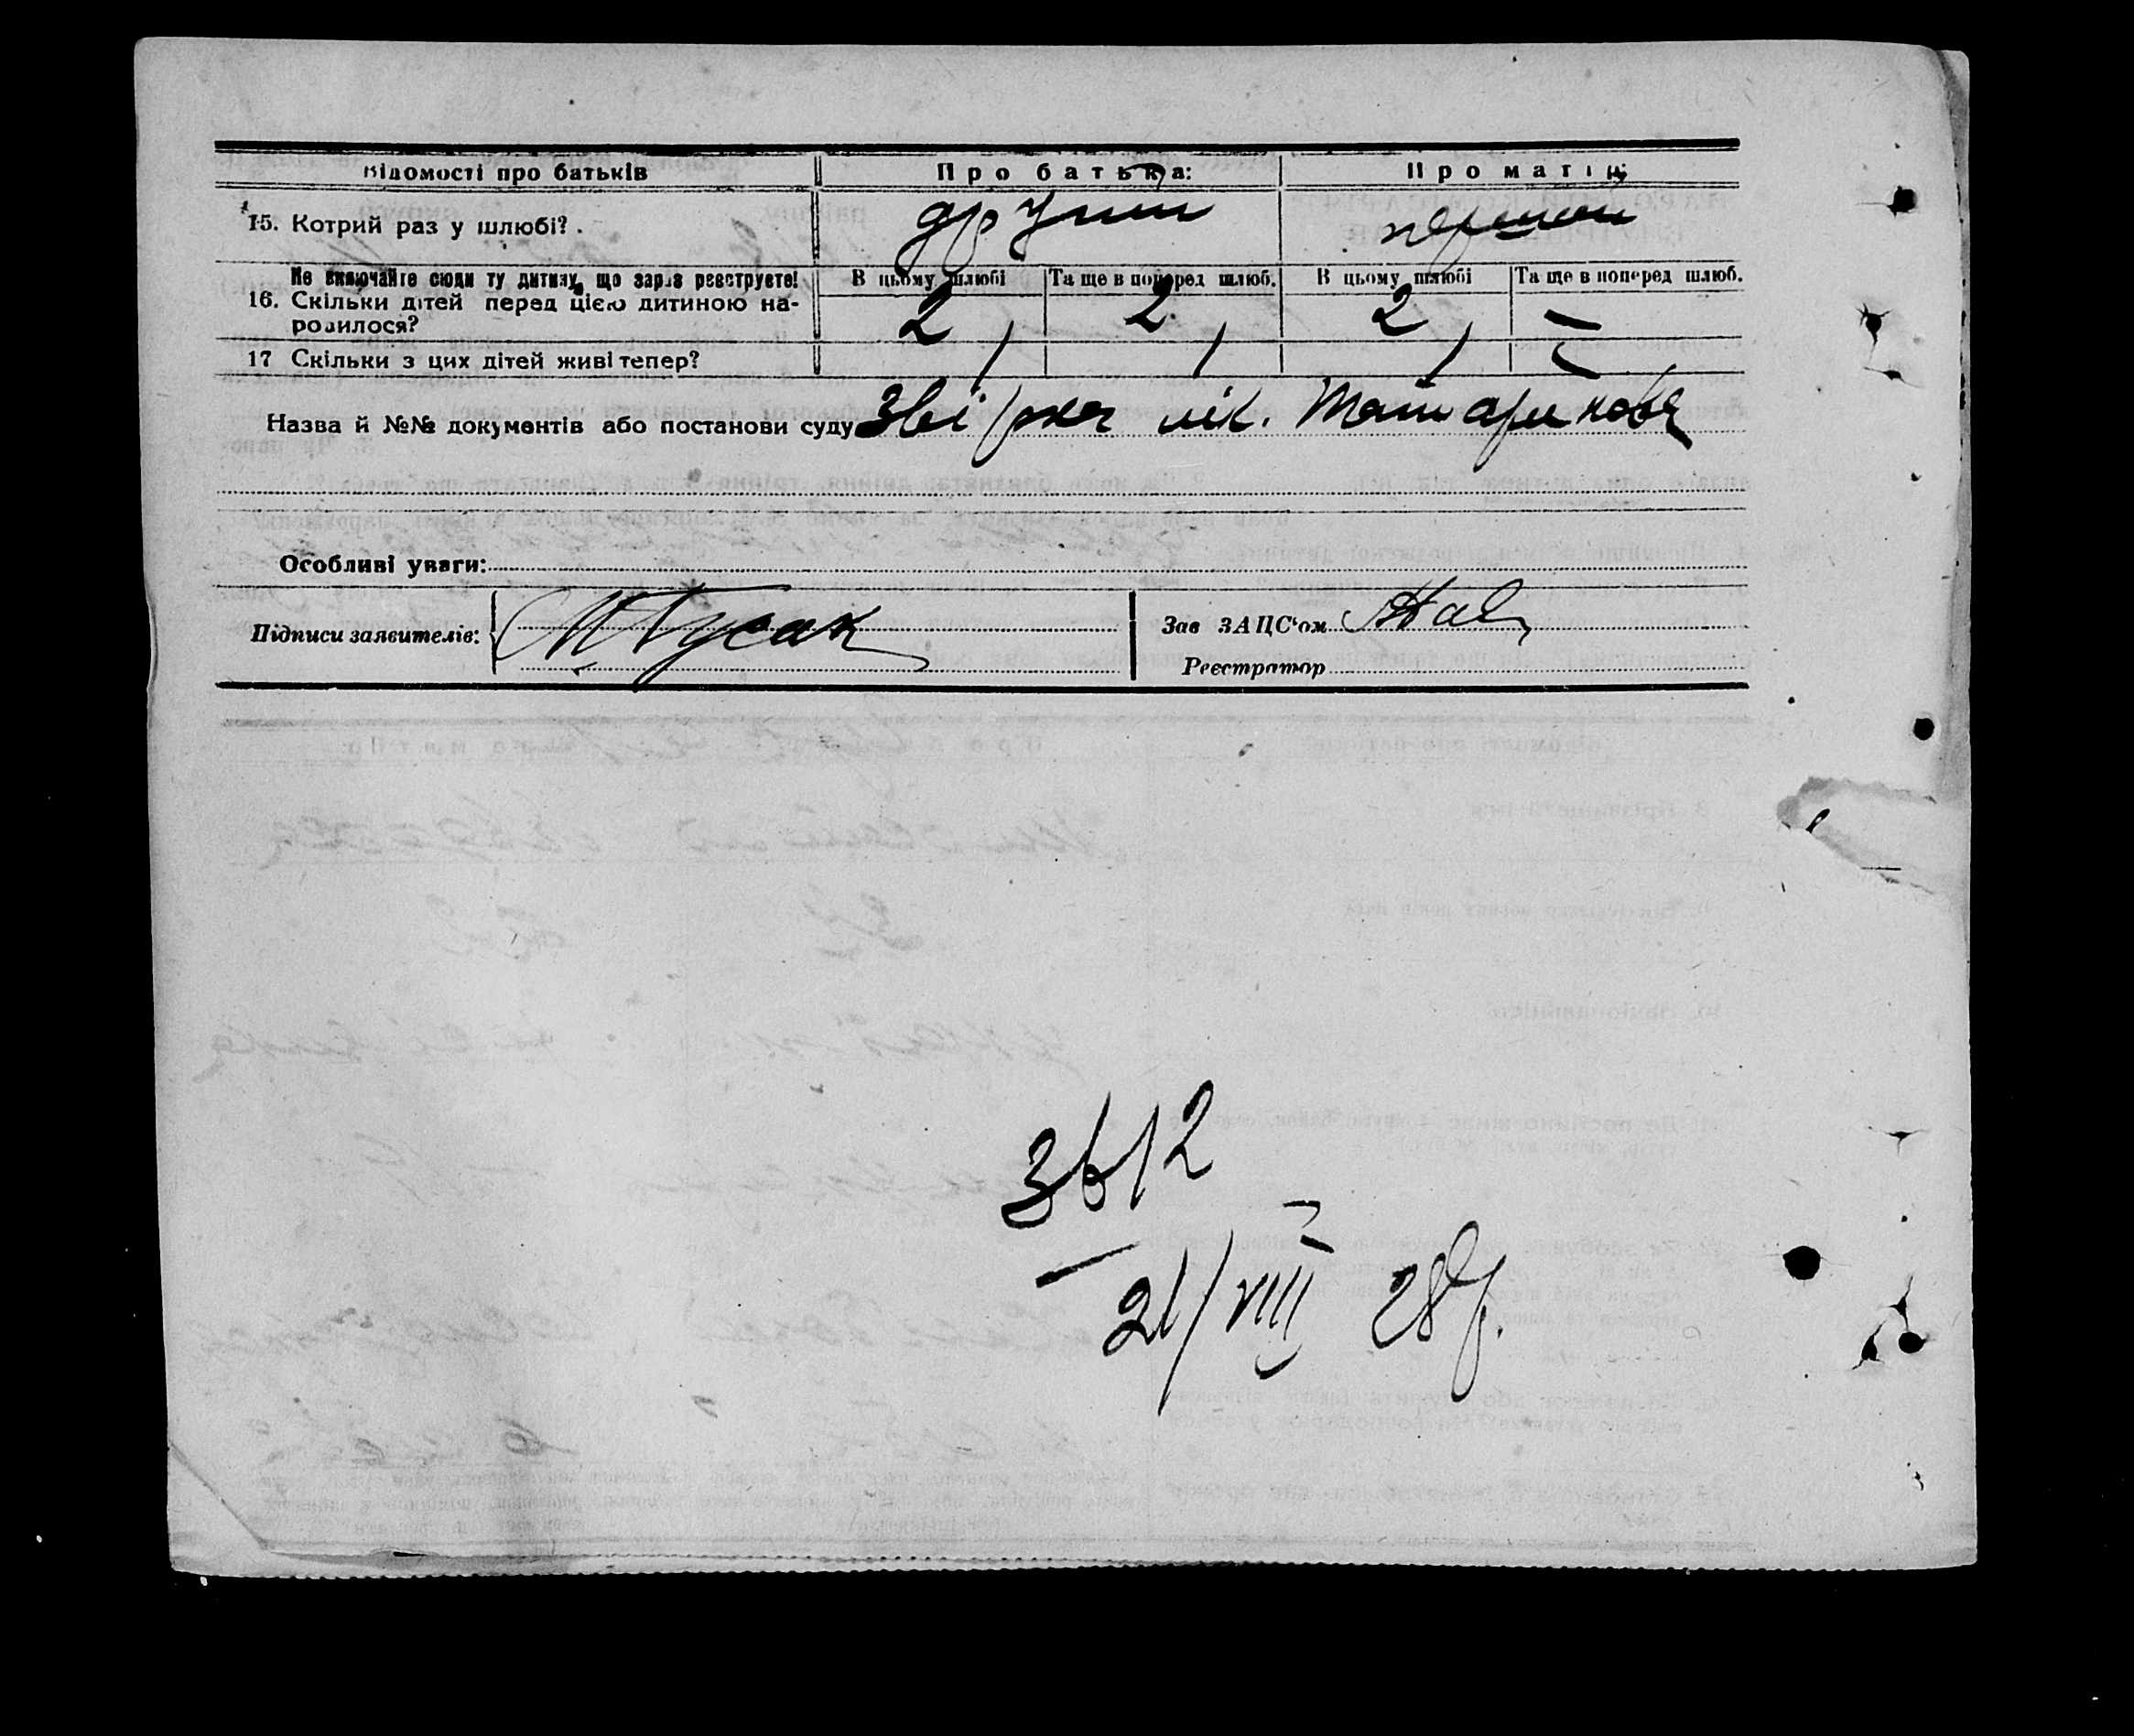 Відомості про батьків Про батька: Про матір:
15. Котрий раз у шлюбі? другий перший
Не включайте сюди ту дитину, що зараз реєструєте! В цьому шлюбі Та ще в поперед шлюб. В цьому шлюбі Та ще в поперед шлюб.
16. Скільки дітей перед цією дитиною на- 2 2 2 —
родилося?
17 Скільки з цих дітей живі тепер? 1 1 1 —
Назва й №№ документів або постанови суду лік.
Особливі уваги:
Підписи заявителів: М Гусак Зав ЗАЦС'ом
Реєстратор
3612
21/VIII 28 р.